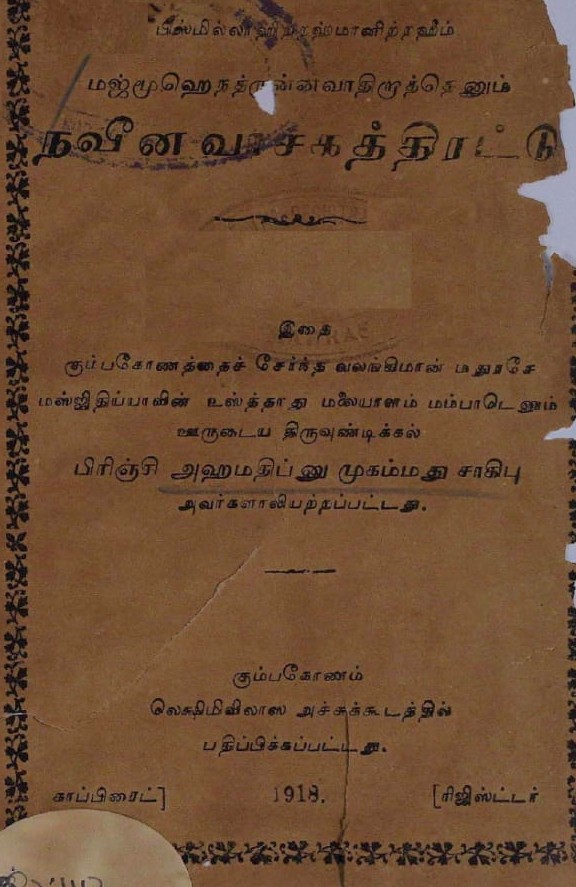 பிஸ்மில்லாஹிர்ரஹ்மானிர்ரஹீம்
நவீன வாசகத்திரட்டு
இதை
கும்பகோணத்தைச் சேர்ந்த வலங்கிமான் மதுரசே
மஸ்ஜிதிய்யாவின் உஸ்த்தாது மலையாளம் மம்பாடெணும்
ஊருடைய திருவுண்டிக்கல்
பிரிஞ்சி அஹமதிப்னு முகம்மது சாகிபு
அவர்களாலியற்றப்பட்டது.
கும்பகோணம்
லெக்ஷிமிவிலாஸ அச்சுக்கூடத்தில்
பதிப்பிக்கப்பட்டது.
காப்பிரைட்] 1918. [ரிஜிஸ்ட்டர்